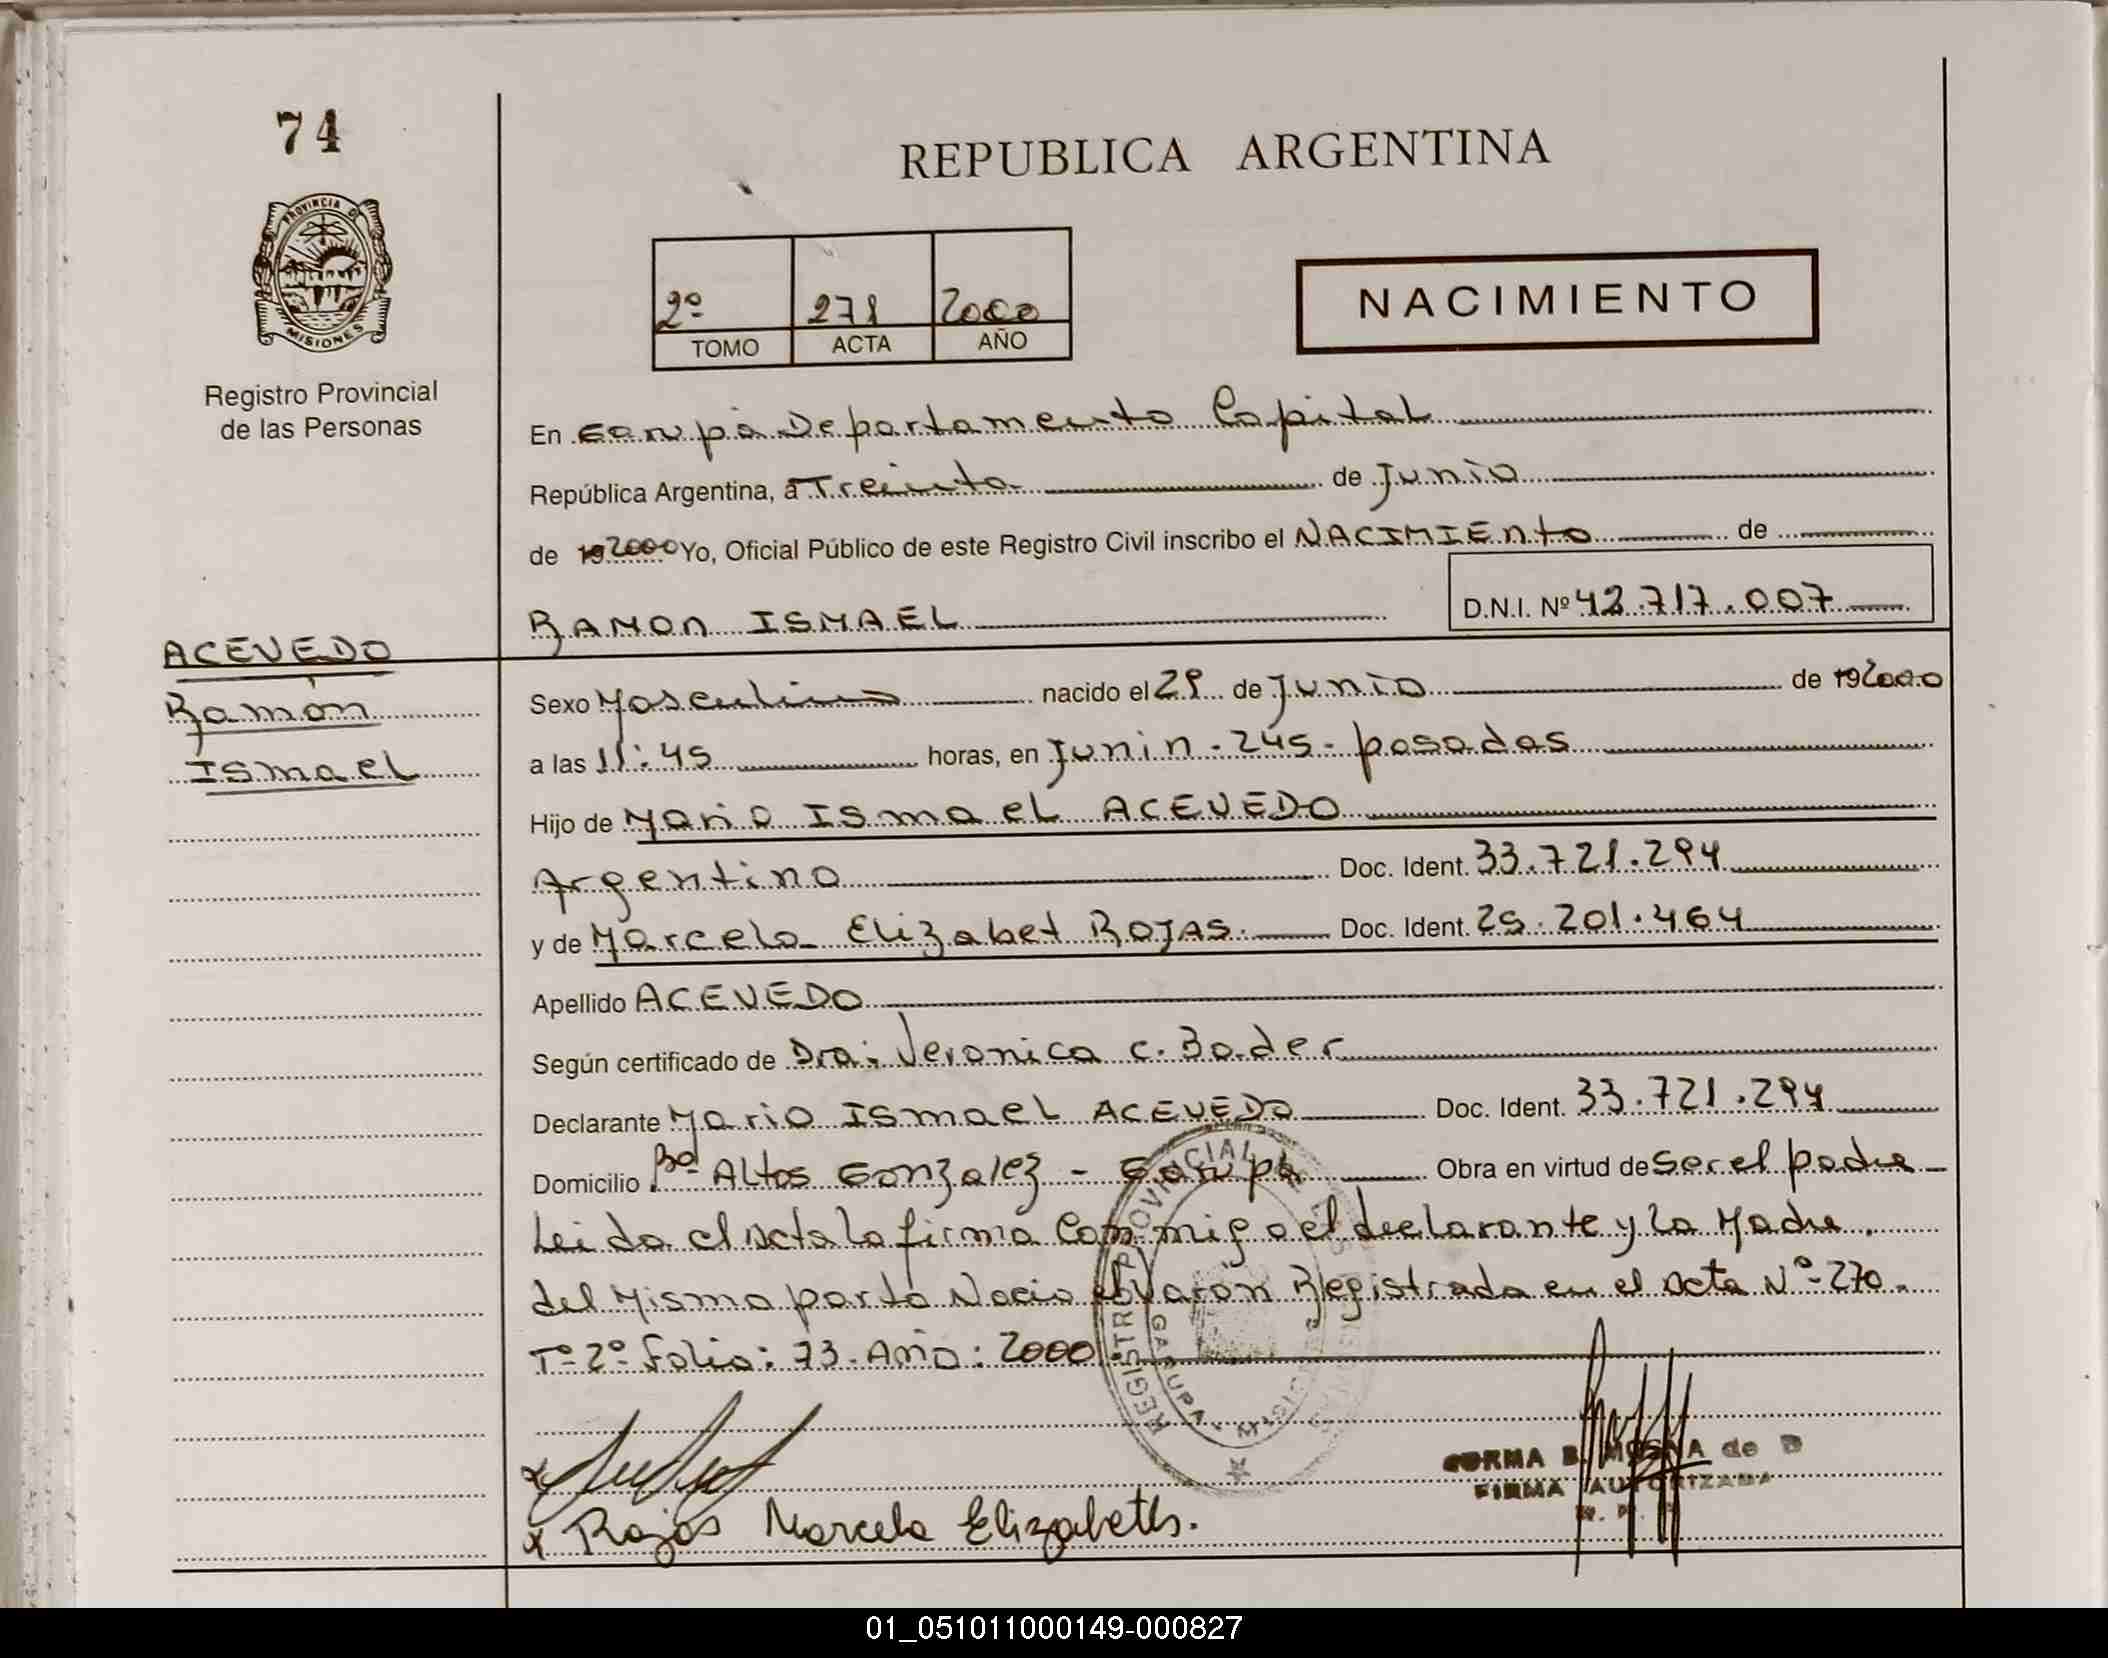 74
REPUBLICA ARGENTINA
PROVINCIA DE
MISIONES
Registro Provincial
de las Personas
2º 271 2000
TOMO ACTA AÑO
NACIMIENTO
En Garupá Departamento Capital
República Argentina, a Treinta de Junio
de 192000 Yo, Oficial Público de este Registro Civil inscribo el NACIMIENTO de
RAMON ISMAEL D.N.I. Nº 42.717.007
ACEVEDO
Ramón
Ismael
Sexo Masculino nacido el 29 de Junio de 192000
a las 11:45 horas, en Junin - 245 - posadas
Hijo de Mario Ismael ACEVEDO
Argentino Doc. Ident. 33.721.294
y de Marcela Elizabet ROJAS. Doc. Ident. 25.201.464
Apellido ACEVEDO
Según certificado de Dra: Veronica C. Bader
Declarante Mario Ismael ACEVEDO Doc. Ident. 33.721.294
Domicilio Bº Altos Gonzalez - Garupá Obra en virtud de Ser el padre
Leida el acta la firma Conmigo el declarante y la Madre.
del Mismo parto Nacio el Varón Registrada en el acta Nº 270.
Tº 2º folio: 73 - Año: 2000
REGISTRO PROVINCIAL DE LAS
GARUPA MISIONES
x
x Rojas Marcela Elizabeth.
MOSNA de
FIRMA AUTORIZADA
01_051011000149-000827